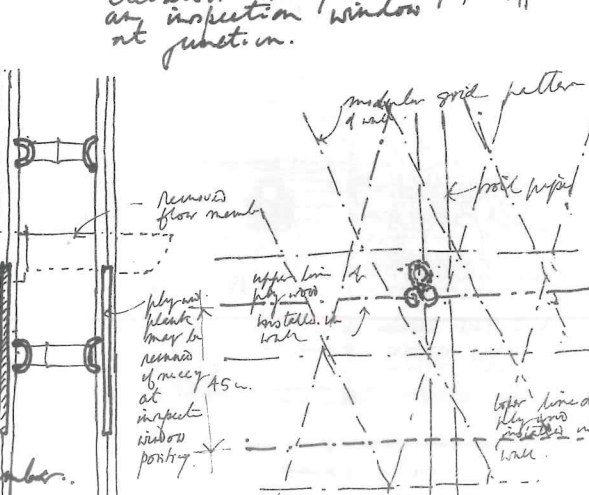 any inspection window
at junction.
modular grid pattern
of wall
soil pipes
removed
floor member
upper line
ply wood
installed in
wall
plywood
plank
may be
removed
if neccy
at
inspect
window
position
45
lower line of
ply wood
installed in
wall.